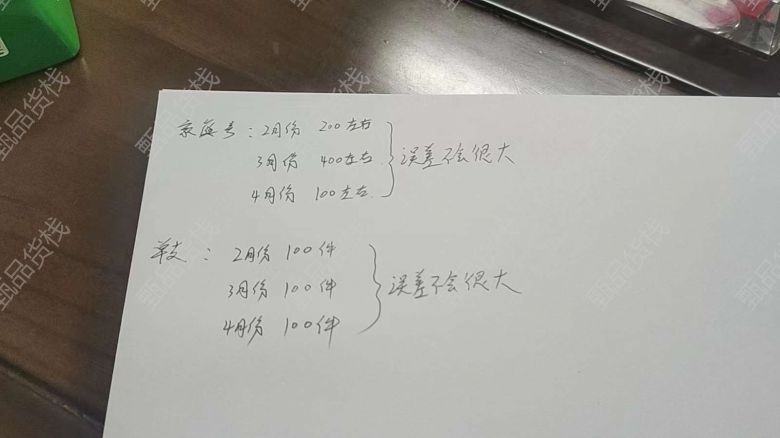 京莲号：2月份 200左右
3月份 400左右
4月份 100左右
误差不会很大
单支：2月份 100件
3月份 100件
4月份 100件
误差不会很大
甄品货栈
甄品货栈
甄品货栈
甄品货栈
甄品货栈
甄品货栈
甄品货栈
甄品货栈
甄品货栈